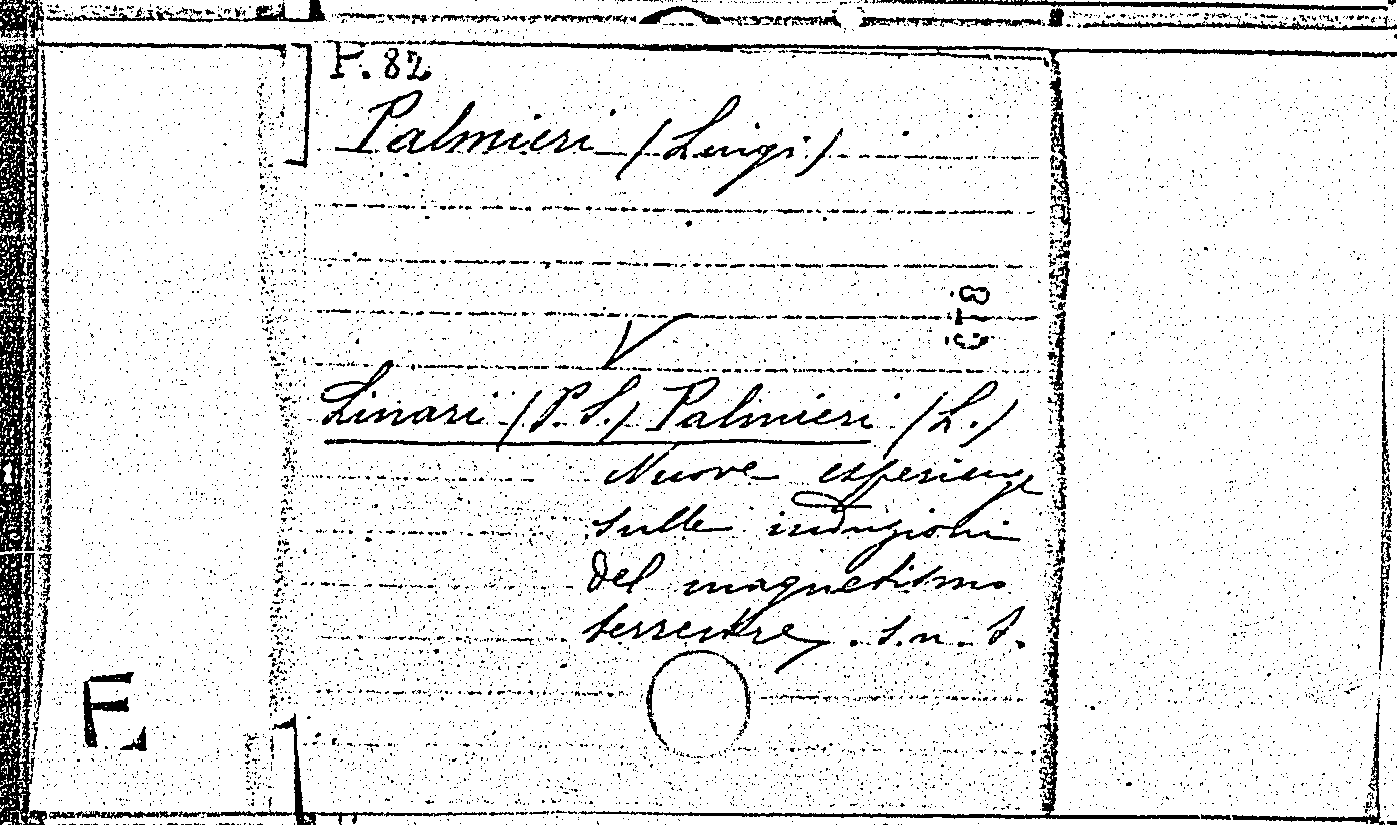 P. 82
Palmieri (Luigi)
V
Linari (P. S.) Palmieri (L.)
Nuove esperienze
sulle induzioni
del magnetismo
terrestre, s. n. t.
E